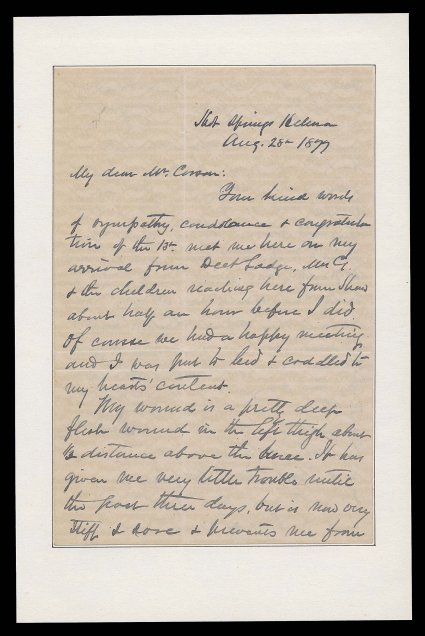 Hot Springs Helena
Aug. 28th 1877
My dear Mr. Corson:
Your kind words
of sympathy, condolence & congratula
tion of the 13th met me here on my
arrival from Deer Lodge, Mrs G.
& the children reaching here from Shaw
about half an hour before I did.
Of course we had a happy meeting,
and I was put to bed & coddled to
my hearts' content.
My wound is a pretty deep
flesh wound in the left thigh about
distance above the knee. It has
given me very little trouble until
the past three days, but is now very
stiff & sore & prevents me from